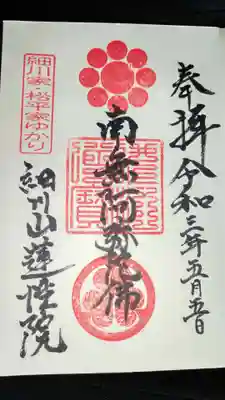 奉拝 令和三年五月五日
南無阿弥陀佛
細川家・松平家ゆかり
細川山蓮性院